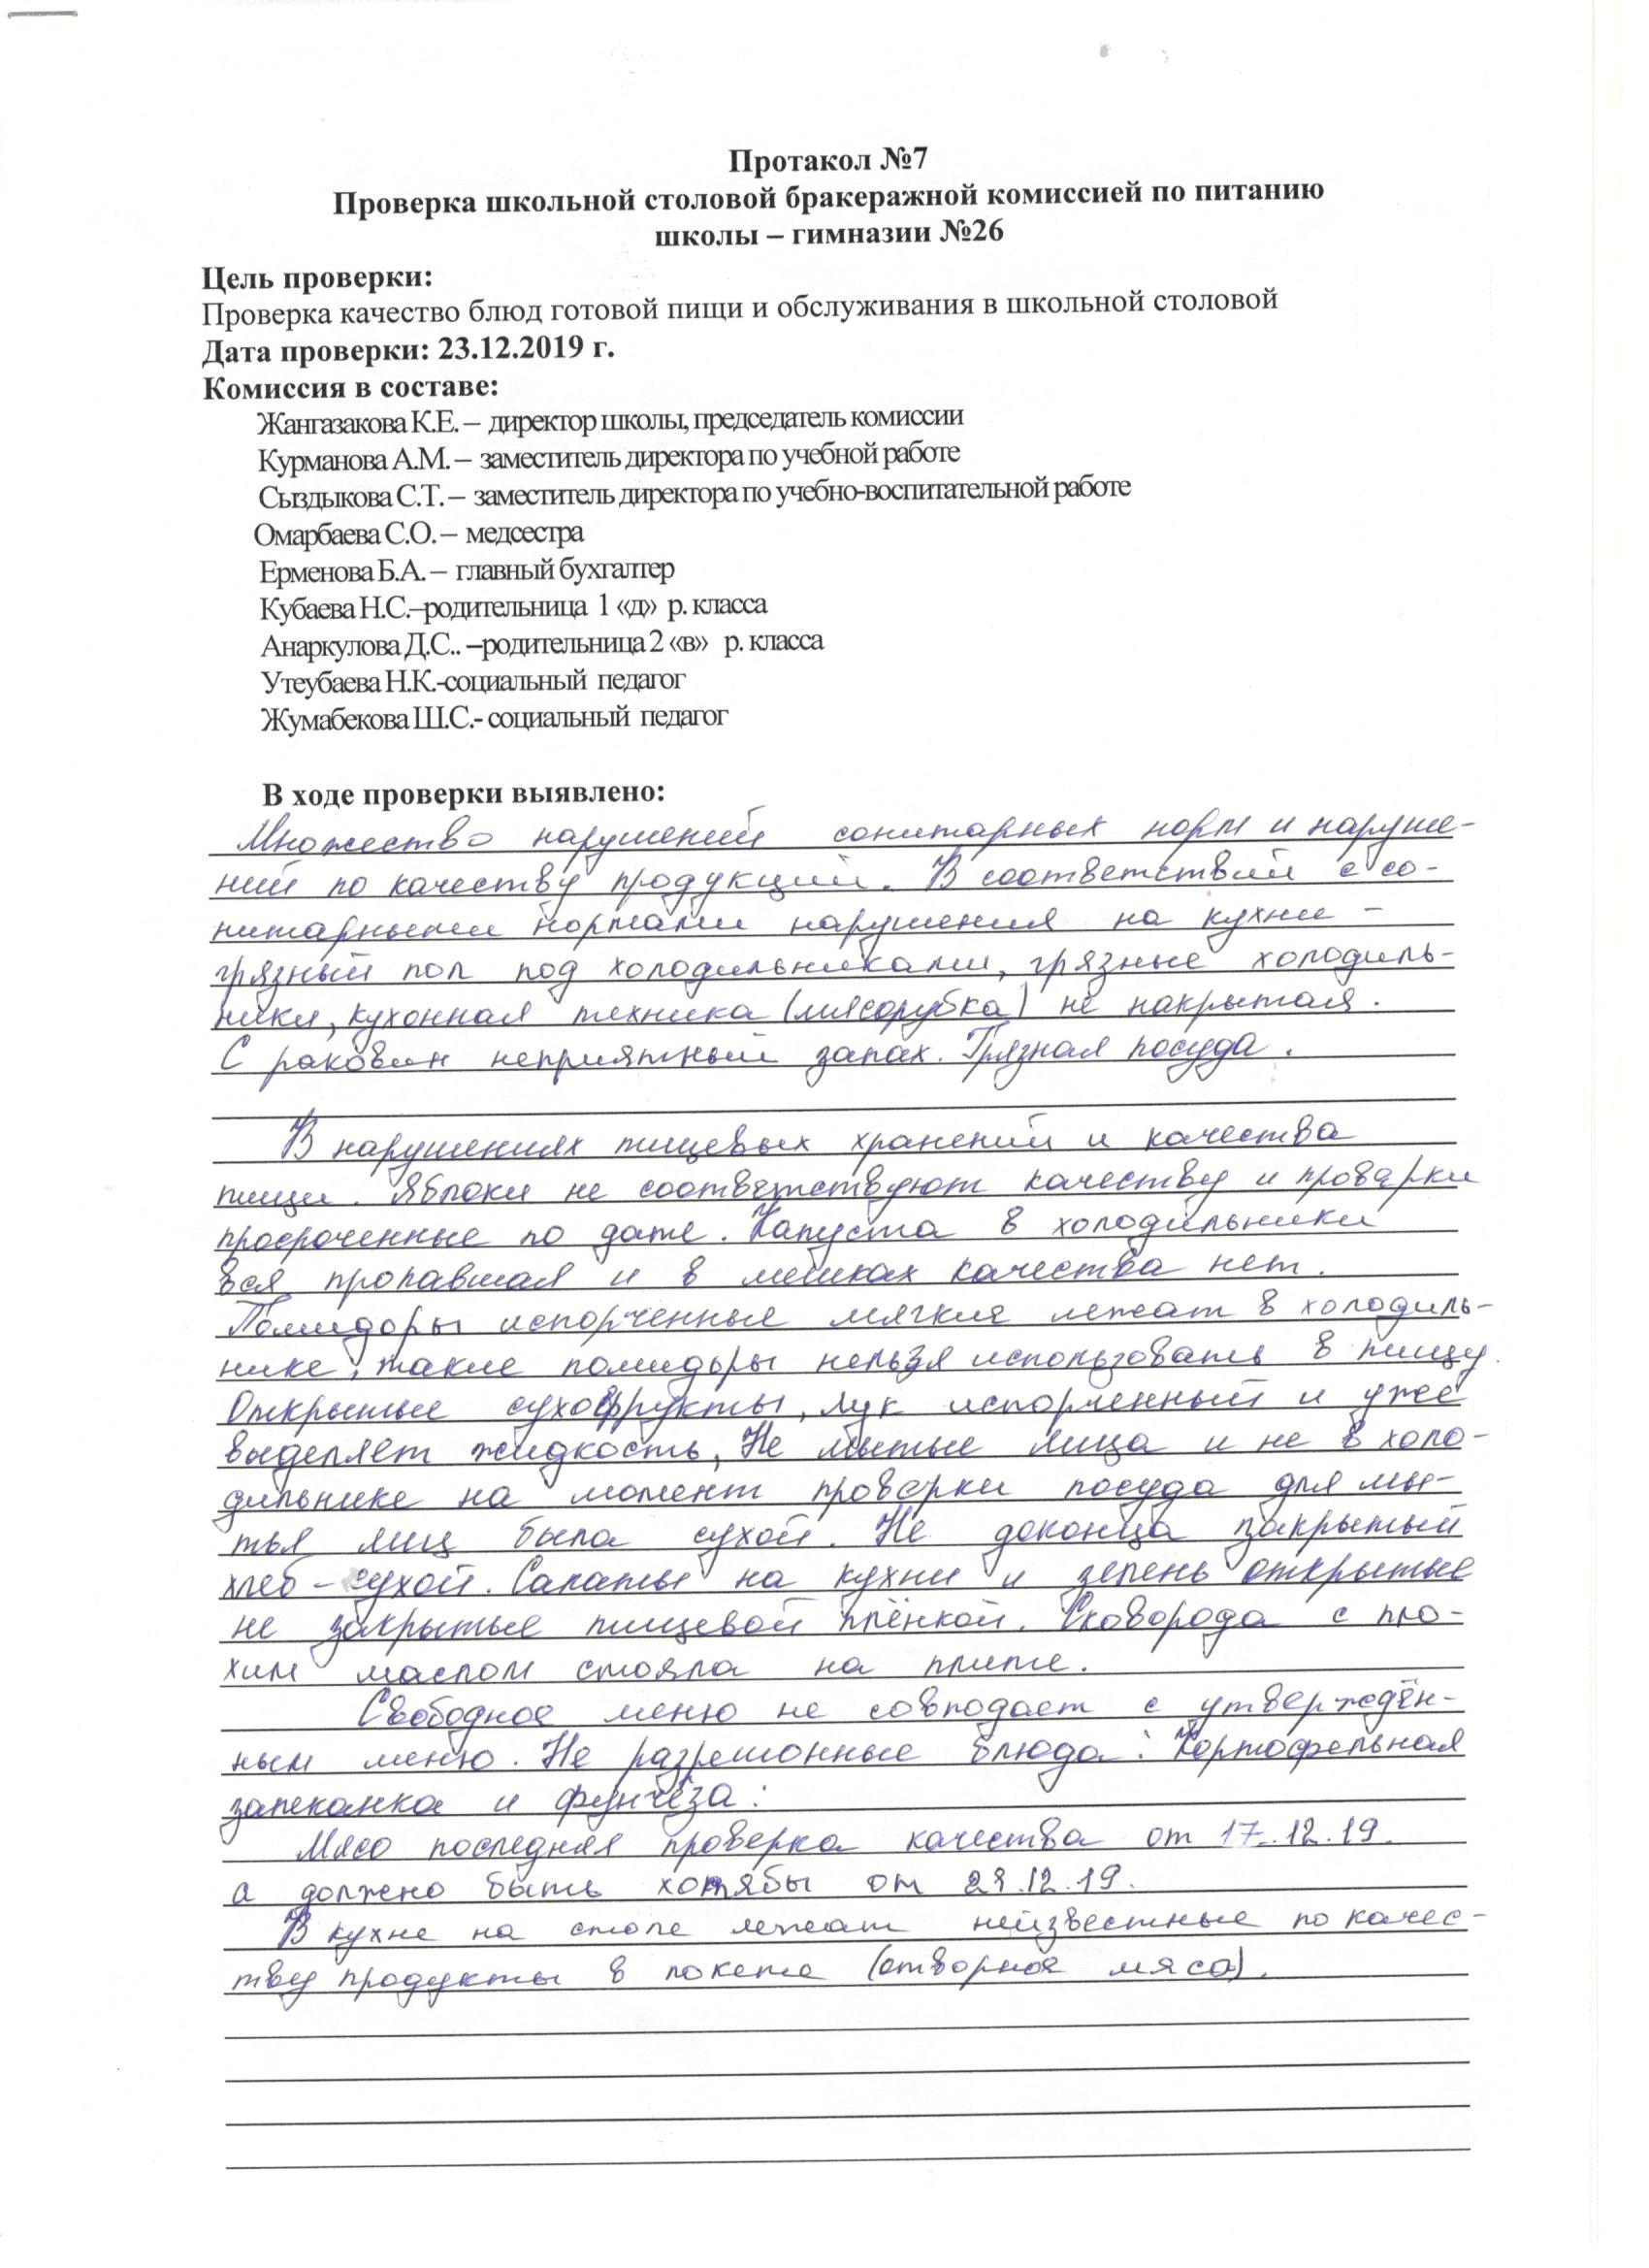 Протакол №7
Проверка школьной столовой бракеражной комиссией по питанию
школы – гимназии №26
Цель проверки:
Проверка качество блюд готовой пищи и обслуживания в школьной столовой
Дата проверки: 23.12.2019 г.
Комиссия в составе:
Жангазакова К.Е. – директор школы, председатель комиссии
Курманова А.М. – заместитель директора по учебной работе
Сыздыкова С.Т. – заместитель директора по учебно-воспитательной работе
Омарбаева С.О. – медсестра
Ерменова Б.А. – главный бухгалтер
Кубаева Н.С.–родительница 1 «д» р. класса
Анаркулова Д.С.. –родительница 2 «в» р. класса
Утеубаева Н.К.-социальный педагог
Жумабекова Ш.С.- социальный педагог
В ходе проверки выявлено:
Множество нарушений сонитарных норм и наруше-
ний по качеству продукций. В соответствий с со-
нитарными нормами нарушения на кухни -
грязный пол под холодильниками, грязные холодиль-
ники, кухонная техника (мясорубка) не накрытая.
С раковин неприятный запах. Грязная посуда.
В нарушениях пищевых хранений и качества
пищи. Яблоки не соответствуют качеству и проверки
просроченные по дате. Капуста в холодильники
вся пропавшая и в мешках качества нет.
Помидоры испорченные мягкие лежат в холодиль-
нике, такие помидоры нельзя использовать в пищу.
Открытые сухофрукты, лук испорченный и уже
выделяет жидкость, Не мытые яица и не в холо-
дильнике на момент проверки посуда для мы-
тья яиц была сухой. Не доконца закрытый
хлеб - сухой. Салаты на кухни и зелень открытые
не закрытые пищевой плёнкой. Сковорода с пло-
хим маслом стояла на плите.
Свободное меню не совподает с утверждён-
ным меню. Не разрешонные блюда: Картофельная
запеканка и фунчёза:
Мясо последняя проверка качества от 17.12.19.
а должено быть хотябы от 23.12.19.
В кухне на столе лежат неизвестные по качес-
тву продукты в покете (отворное мяса).